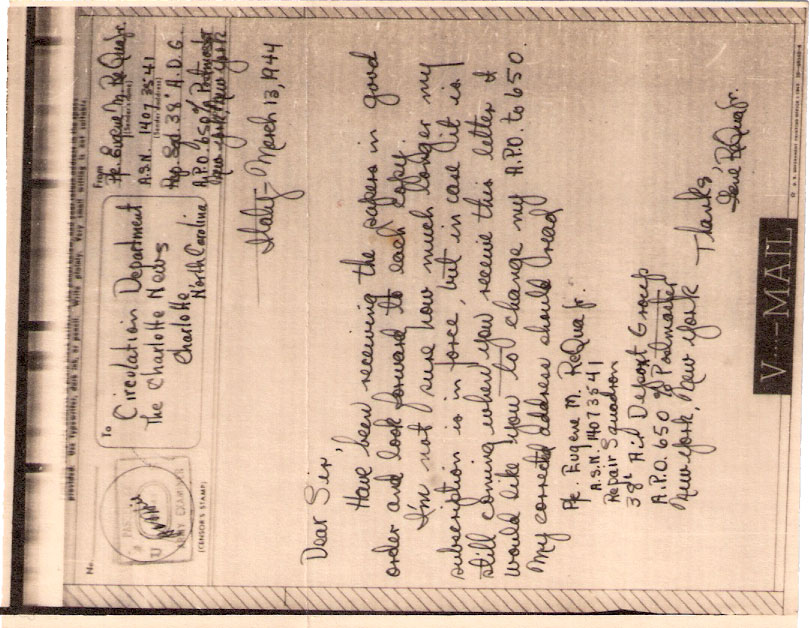 provided. Use typewriter, dark ink, or pencil. Write plainly. Very small writing is not suitable.
No.
(CENSOR'S STAMP)
ARMY EXAMINER
To
Circulation Department
The Charlotte News
Charlotte
North Carolina
From
Pfc. Eugene M. ReQua Jr.
(Sender's name)
A.S.N. 14073541
(Sender's address)
Rep. Sqd. 38th A.D.G.
A.P.O. 650 % Postmaster
New York, New York
Italy - March 13, 1944
Dear Sir,
Have been receiving the papers in good
order and look forward to each copy.
I'm not sure how much longer my
subscription is in force, but in case it is
still coming when you receive this letter I
would like you to change my A.P.O. to 650.
My corrected address should read
Pfc. Eugene M. ReQua Jr.
A.S.N. 14073541
Repair Squadron
38th Air Depot Group
A.P.O. 650 % Postmaster
New York, New York
Thanks,
Gene ReQua Jr.
V···—MAIL